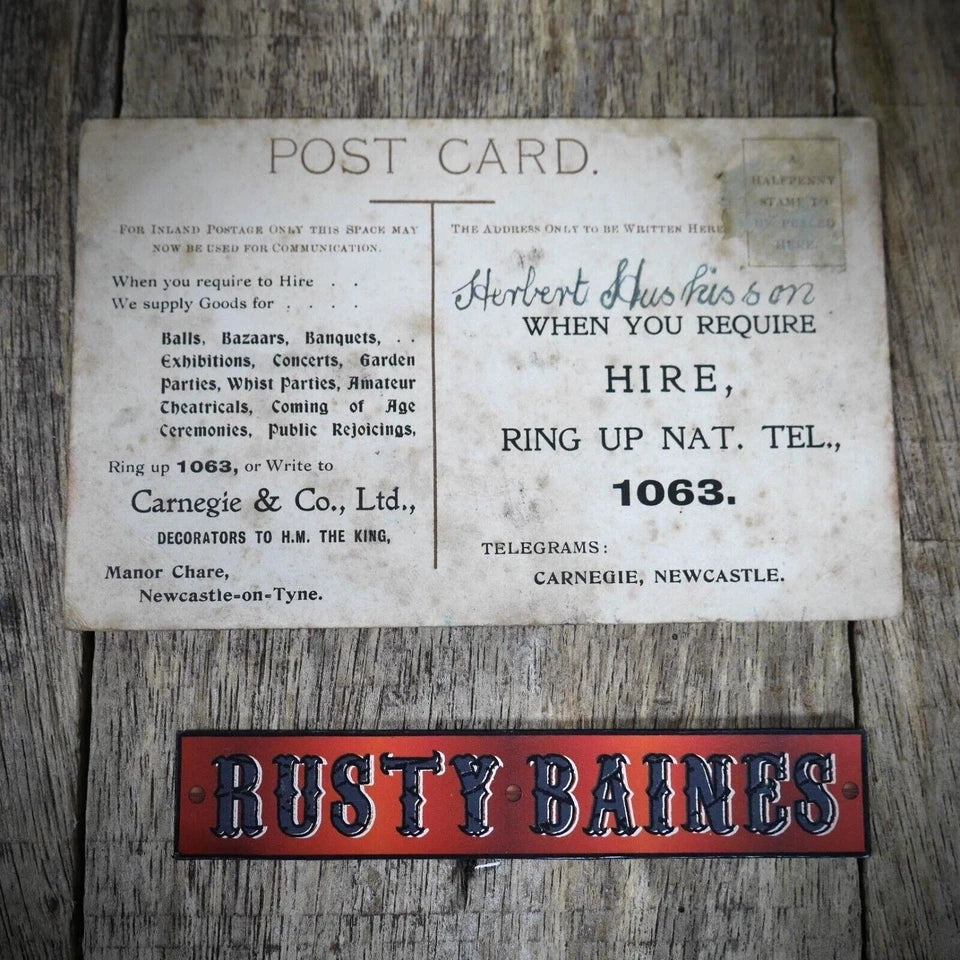 POST CARD.
FOR INLAND POSTAGE ONLY THIS SPACE MAY
NOW BE USED FOR COMMUNICATION.
When you require to Hire . .
We supply Goods for . . . .
Balls, Bazaars, Banquets, . .
Exhibitions, Concerts, Garden
Parties, Whist Parties, Amateur
Theatricals, Coming of Age
Ceremonies, Public Rejoicings,
Ring up 1063, or Write to
Carnegie & Co., Ltd.,
DECORATORS TO H.M. THE KING,
Manor Chare,
Newcastle-on-Tyne.
THE ADDRESS ONLY TO BE WRITTEN HERE
A
HALFPENNY
STAMP TO
BE PLACED
HERE.
Herbert Huskisson
WHEN YOU REQUIRE
HIRE,
RING UP NAT. TEL.,
1063.
TELEGRAMS:
CARNEGIE, NEWCASTLE.
RUSTY BAINES